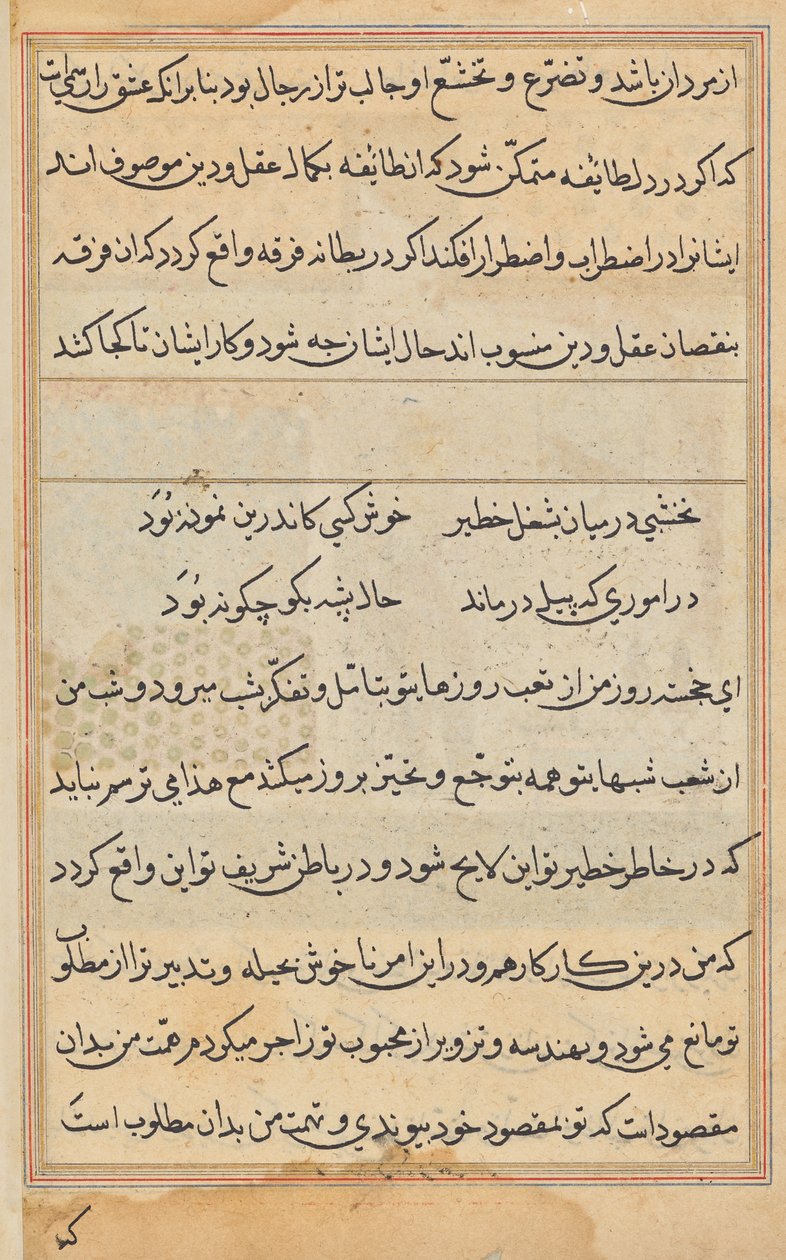 از مردان باشد و تضرّع و تخشّع او جالب تر از رجال بود بنا برانکه عشق را رسمیست
که اکر در دل طائفه متمکّن شود که ان طائفه بکمال عقل و دین موصوف اند
ایشانرا در اضطراب و اضطرار افکند اکر در بطانه فرقه واقع کردد که ان فرقه
بنقصان عقل و دین منسوب اند حال ایشان چه شود و کار ایشان تا کجا کشد
نخشبی در میان بشغل خطیر خوش کسی کاندرین نمونه بُوَد
در اموری که پیل در ماند حال پشه بکو چکونه بُوَد
ای خجسته روز من از تعب روزهای تو بتامّل و تفکّر بشب میرود و شب من
از شعب شبهای تو همه بتوجّع و تحیّر بروز میکشد مع هذا می ترسم نباید
که در خاطر خطیر تو این لایح شود و در باطن شریف تو این واقع کردد
که من درین کار کارهم و در این امر ناخوش بحیله و تدبیر ترا از مطلوب
تو مانع می شود و بهندسه و تزویر از محبوب تو زاجر میکردم همّت من بدان
مقصود است که تو بمقصود خود پیوندی و نهمت من بدان مطلوب است
که